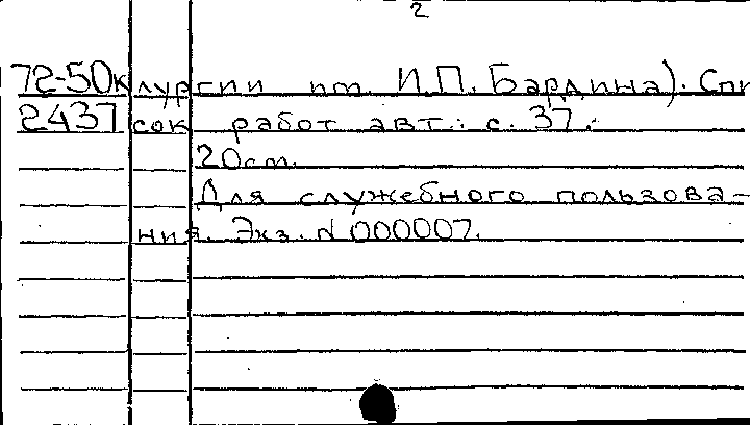 2
72-50к лургии им. И.П. Бардина). Спи
2437 сок работ авт.: с. 37.
20см.
Для служебного пользова-
ния. Экз. N 000007.